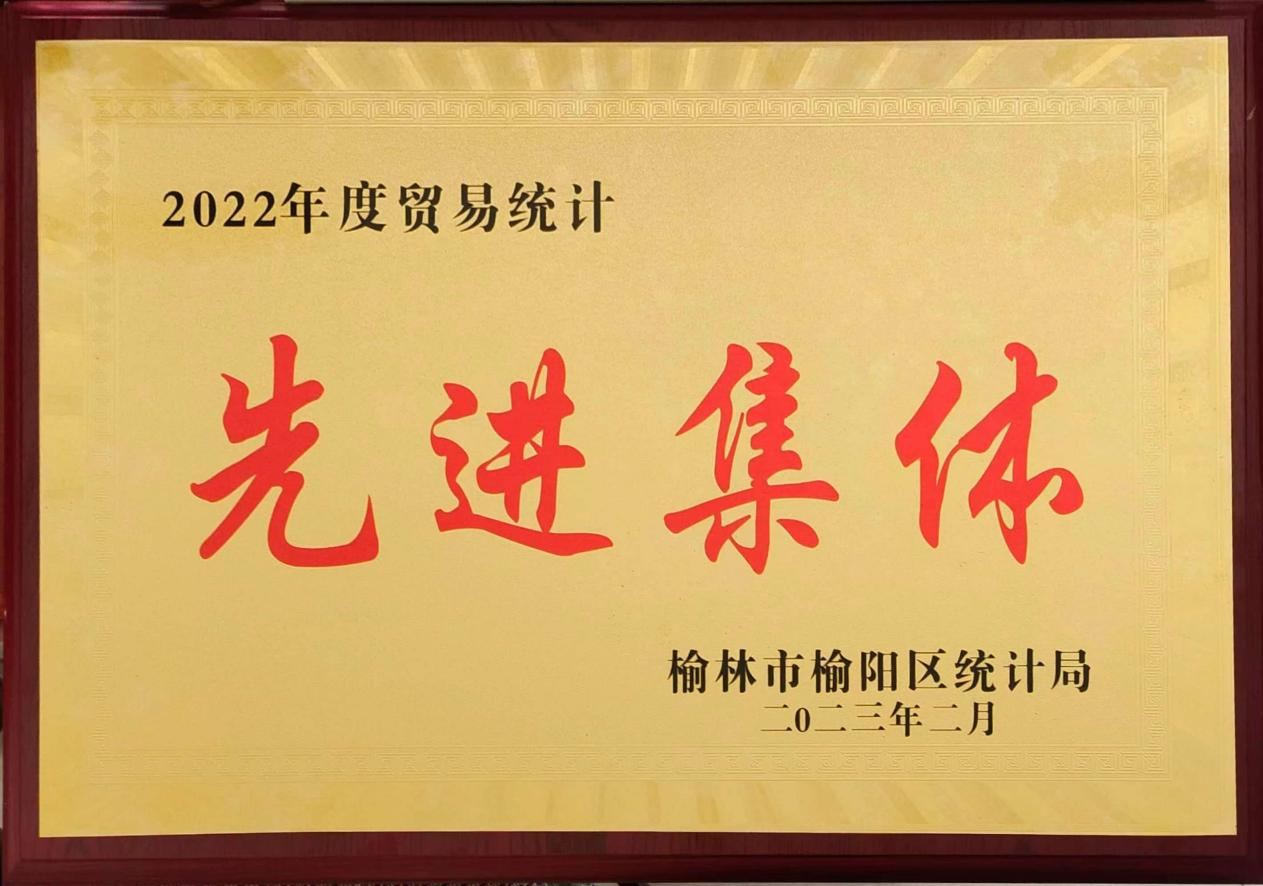 2022年度贸易统计
先进集体
榆林市榆阳区统计局
二0二三年二月